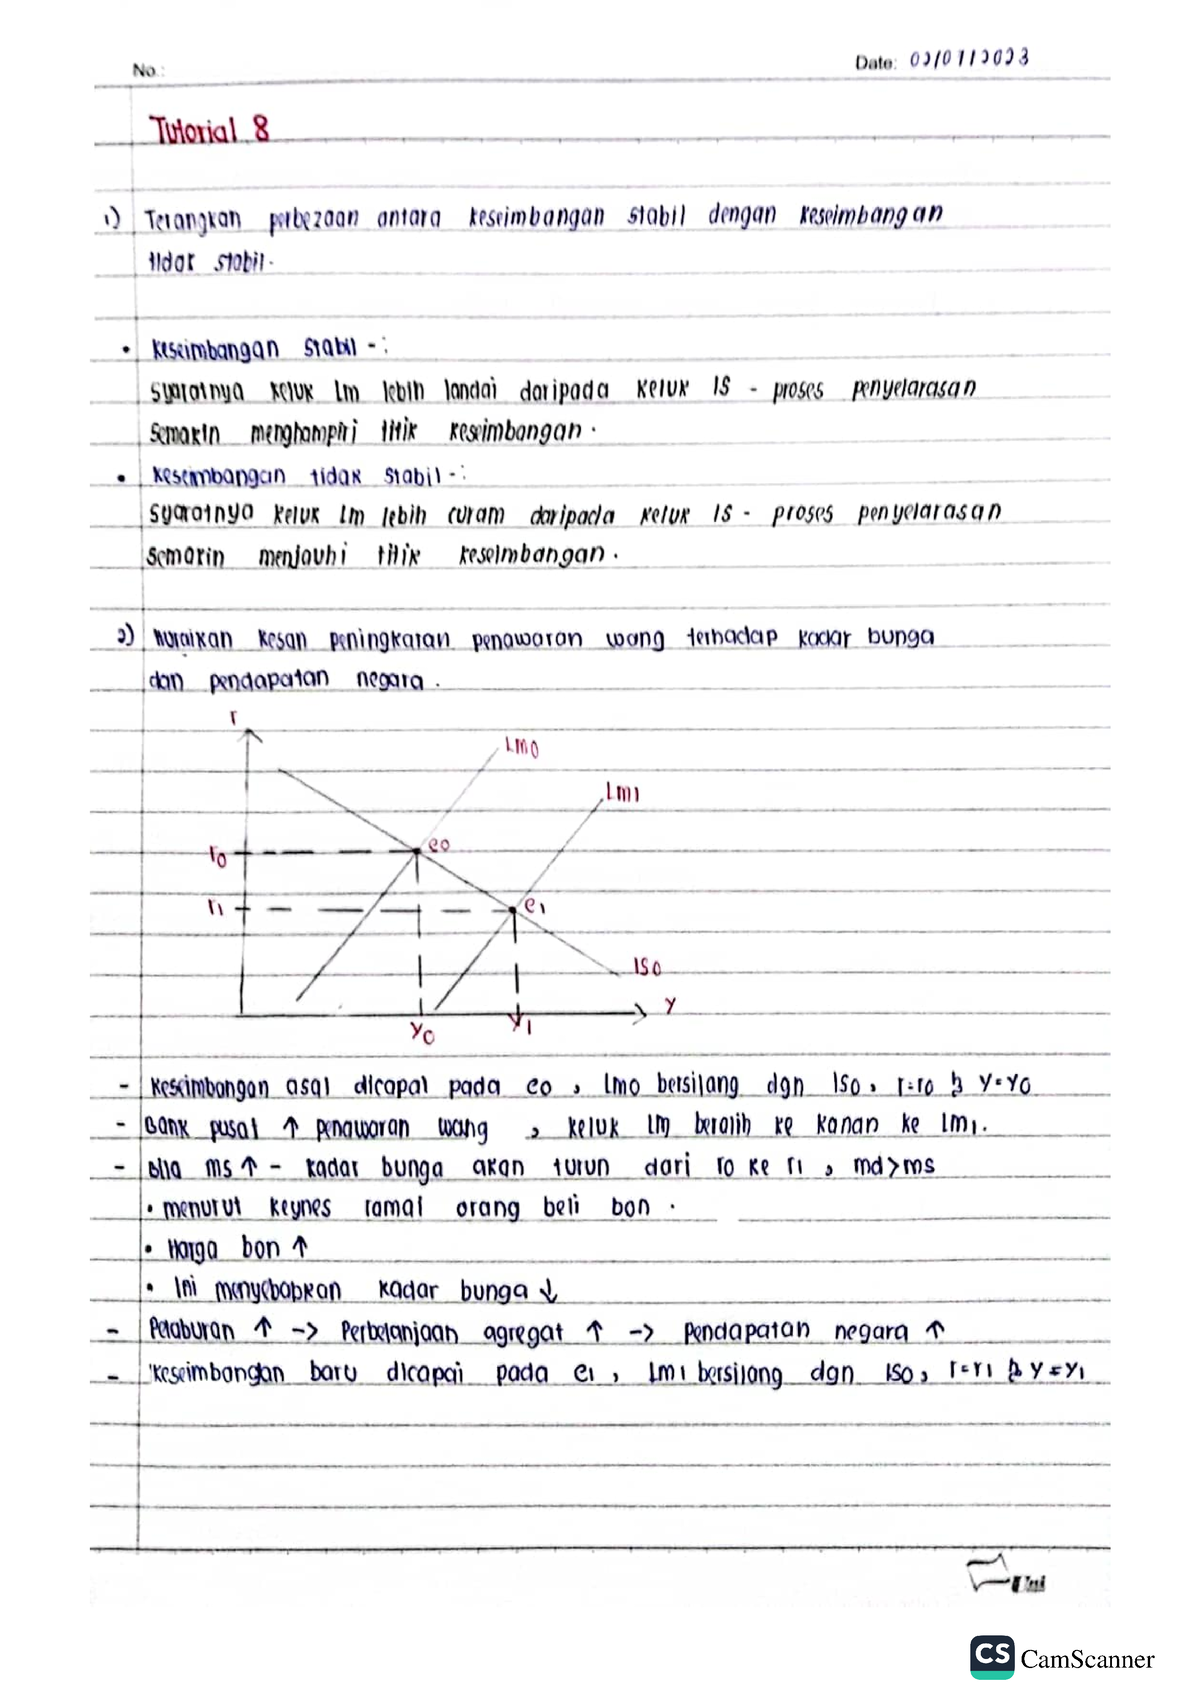 No.:
Date: 02/07/2023
Tutorial 8
1) Terangkan perbezaan antara keseimbangan stabil dengan keseimbangan
tidak stabil.
• Keseimbangan stabil -:
Syaratnya keluk Lm lebih landai daripada keluk IS - proses penyelarasan
semakin menghampiri titik keseimbangan.
• Keseimbangan tidak stabil -:
Syaratnya keluk Lm lebih curam daripada keluk IS - proses penyelarasan
semakin menjauhi titik keseimbangan.
2) Huraikan kesan peningkatan penawaran wang terhadap kadar bunga
dan pendapatan negara.
r
Lm0
Lm1
r0
e0
r1
e1
IS0
Y
Y0
Y1
- Keseimbangan asal dicapai pada e0, Lm0 bersilang dgn IS0, r=r0 & Y=Y0
- Bank pusat ↑ penawaran wang, keluk LM beralih ke kanan ke Lm1.
- Bila ms ↑ - kadar bunga akan turun dari r0 ke r1, md>ms
• menurut keynes ramai orang beli bon.
• Harga bon ↑
• Ini menyebabkan kadar bunga ↓
- Pelaburan ↑ -> Perbelanjaan agregat ↑ -> Pendapatan negara ↑
- Keseimbangan baru dicapai pada e1, Lm1 bersilang dgn IS0, r=r1 & Y=Y1
Uni
CS CamScanner